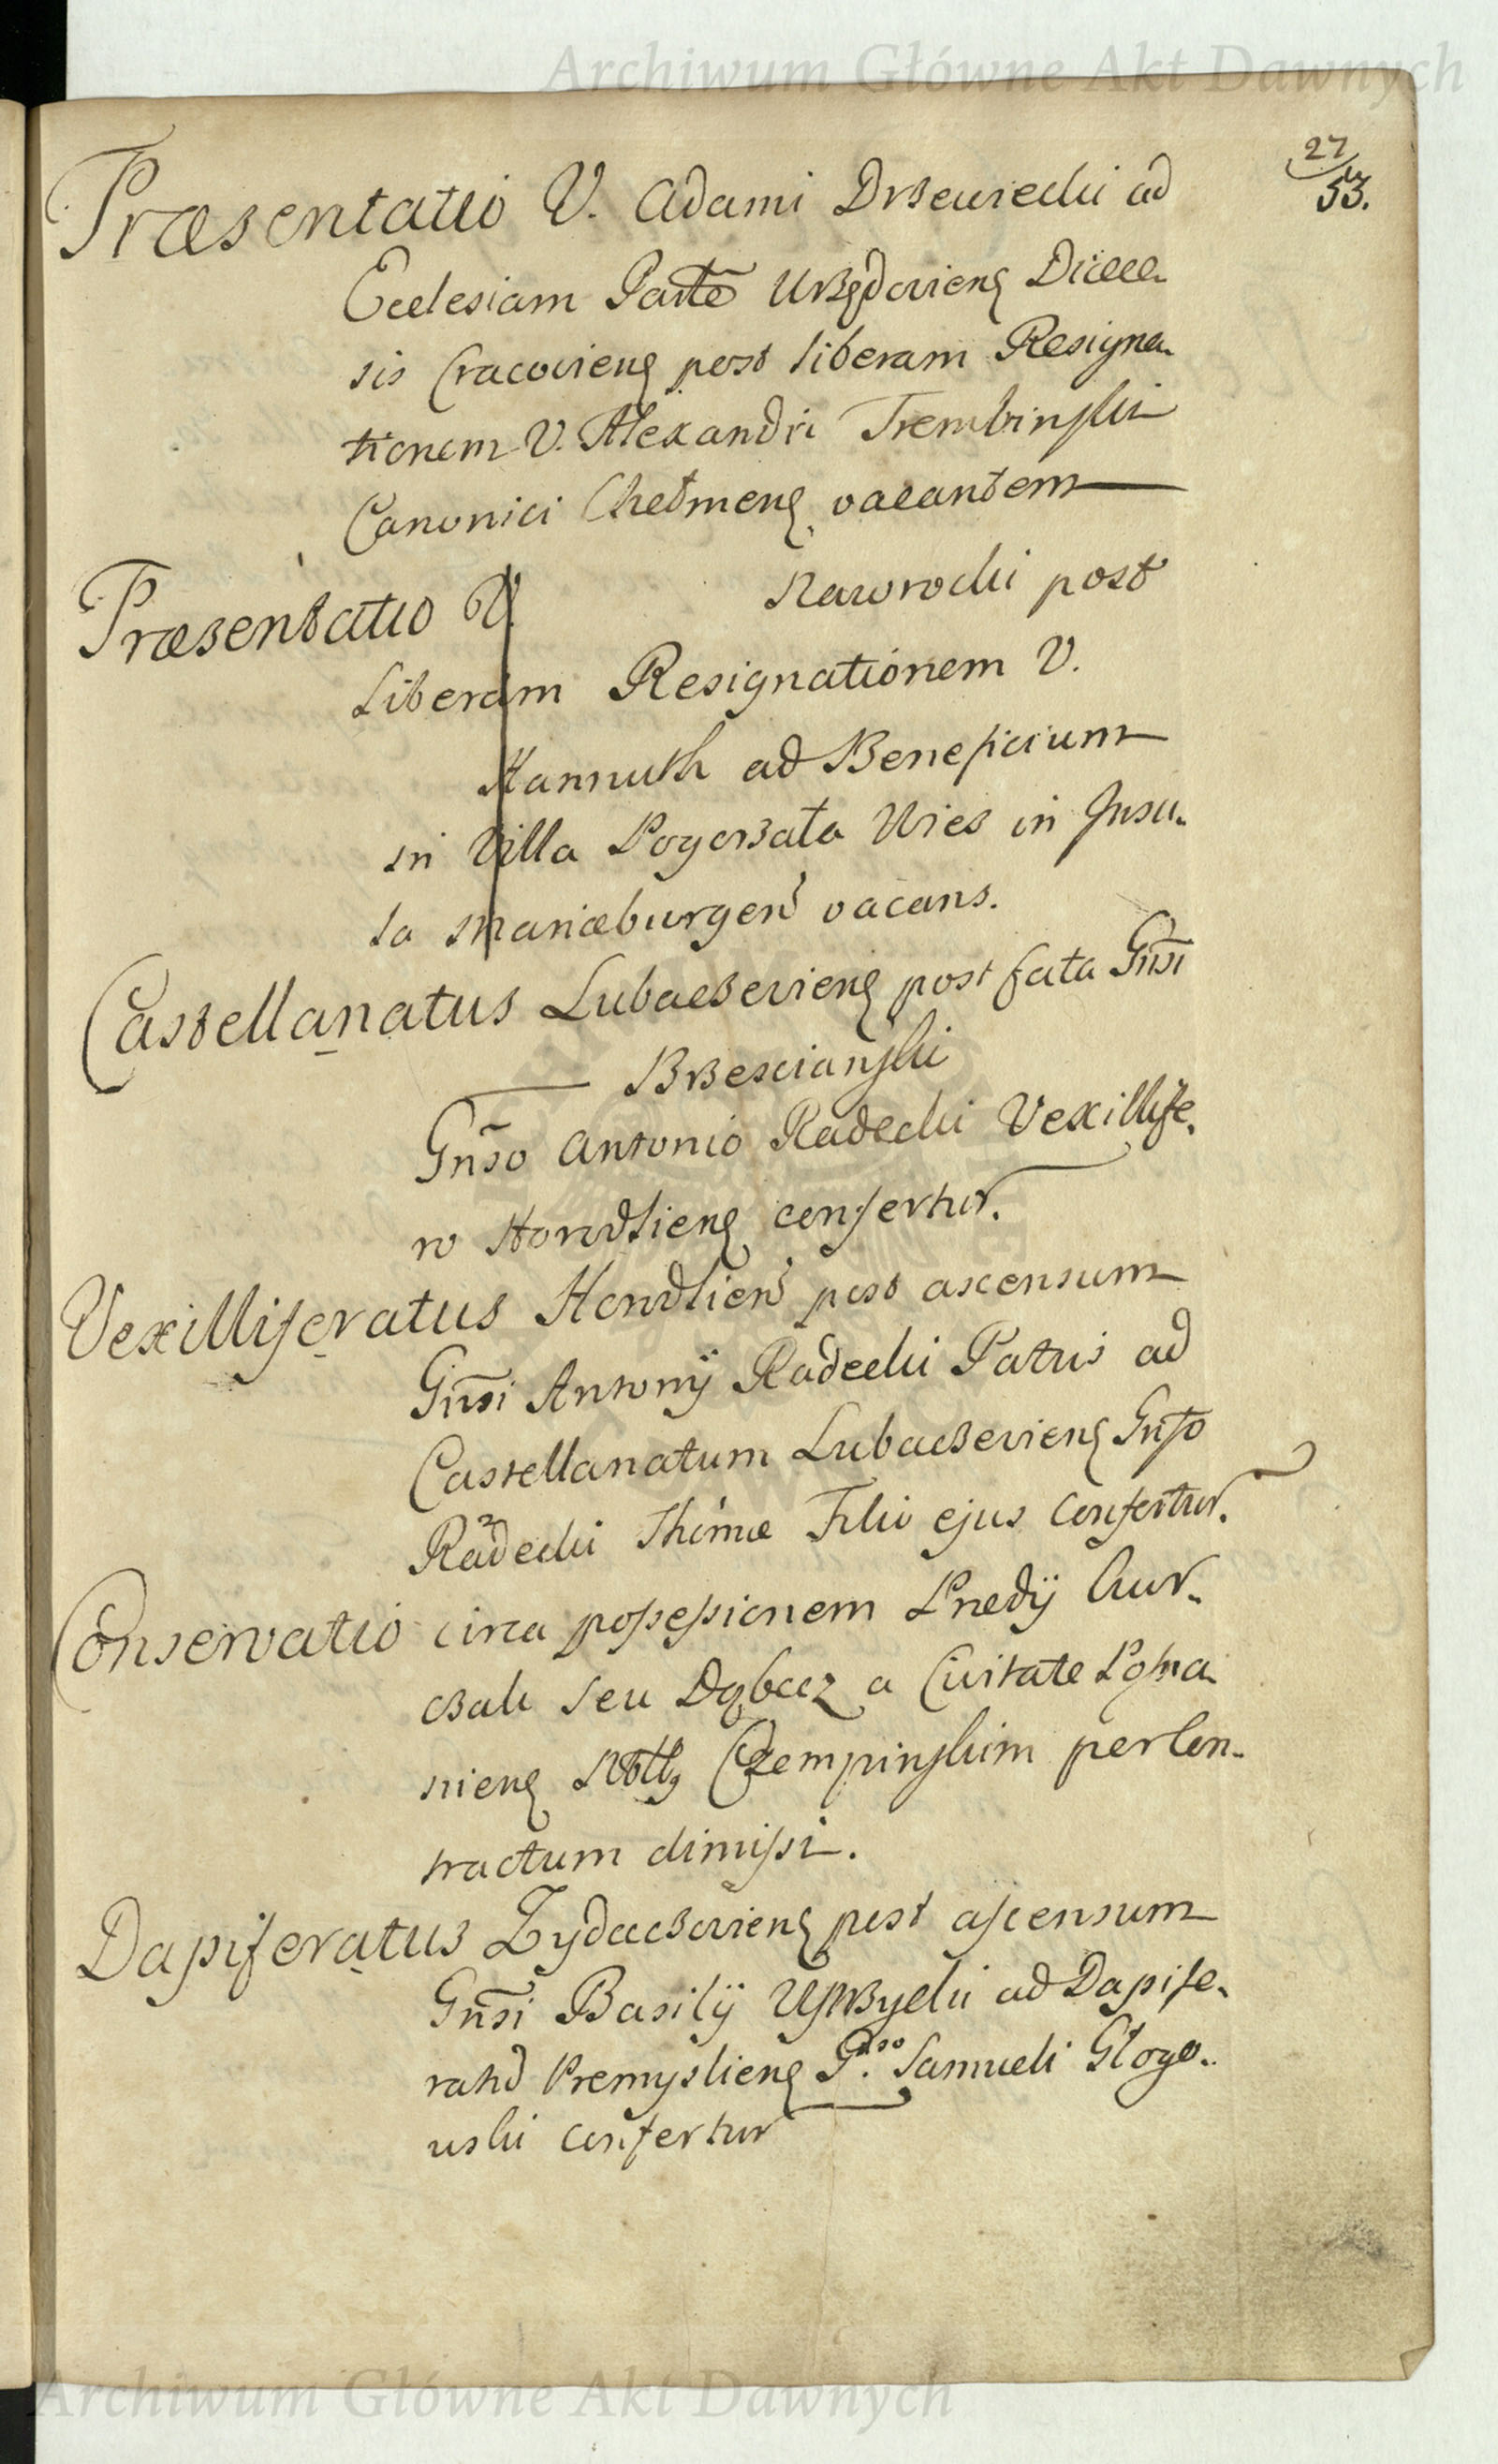 Archiwum Główne Akt Dawnych
27
53.
Præsentatio V. Adami Drzewiecki ad
Ecclesiam Parłem Urzędoviens Diœce-
sis Cracoviens post liberam Resigna-
tionem V. Alexandri Trembinski
Canonici Chełmens vacantem
Præsentatio V. Nawrocki post
Liberam Resignationem V.
Hannuth ad Beneficium
in Villa Pogorzała Wies in Insu-
la Mariæburgen vacans.
Castellanatus Lubaczeviens post fata Gnsi
Brzescianski
Gnso Antonio Radecki Vexillife-
ro Horodliens confertur.
Vexilliferatus Horodlien post ascensum
Gnsi Antonij Radecki Patris ad
Castellanatum Lubaczeviens Gnso
Radecki Thomæ Filio ejus confertur.
Conservatio circa possessionem Prædij Kur-
czak seu Dąbcez a Civitate Posna-
niens Nobili Czempinskim per Con-
tractum dimissi.
Dapiferatus Zydaczoviens post ascensum
Gnsi Basilij Ustrzycki ad Dapife-
ratum Premysliens Gnso Samueli Głogo-
wski confertur
Archiwum Główne Akt Dawnych